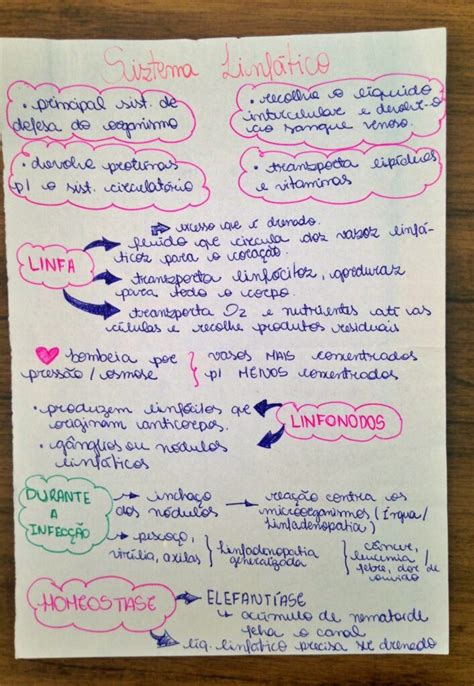 Sistema Linfático
• principal sist. de
defesa do organismo
• recolhe o líquido
intercelular e devolve-o
ao sangue venoso.
• devolve proteínas
p/ o sist. circulatório
• transporta lipídeos
e vitaminas
LINFA
excesso que é drenado.
fluido que circula dos vasos linfá-
ticos para o coração.
transporta linfócitos, gorduras
para todo o corpo.
transporta O2 e nutrientes até as
células e recolhe produtos residuais
bombeia por
pressão/osmose
vasos MAIS concentrados
p/ MENOS concentrados
• produzem linfócitos que
originam anticorpos.
• gânglios ou nódulos
linfáticos
LINFONODOS
DURANTE
A
INFECÇÃO
inchaço
dos nódulos
reação contra os
microorganismos (íngua/
linfadenopatia)
pescoço,
virília, axilas
linfadenopatia
generalizada
câncer,
leucemia
febre, dor de
ouvido
HOMEOSTASE
ELEFANTÍASE
acúmulo de nematoide
fecha o canal
líq. linfático precisa ser drenado